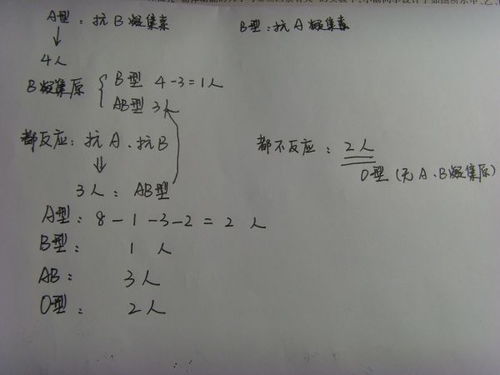 A型：抗B凝集素
B型：抗A凝集素
↓
4人
B凝集原 { B型 4-3=1人
AB型 3人
都反应：抗A、抗B
⇓
3人：AB型
都不反应：2人
O型（无A、B凝集原）
A型：8-1-3-2=2人
B型：1人
AB：3人
O型：2人